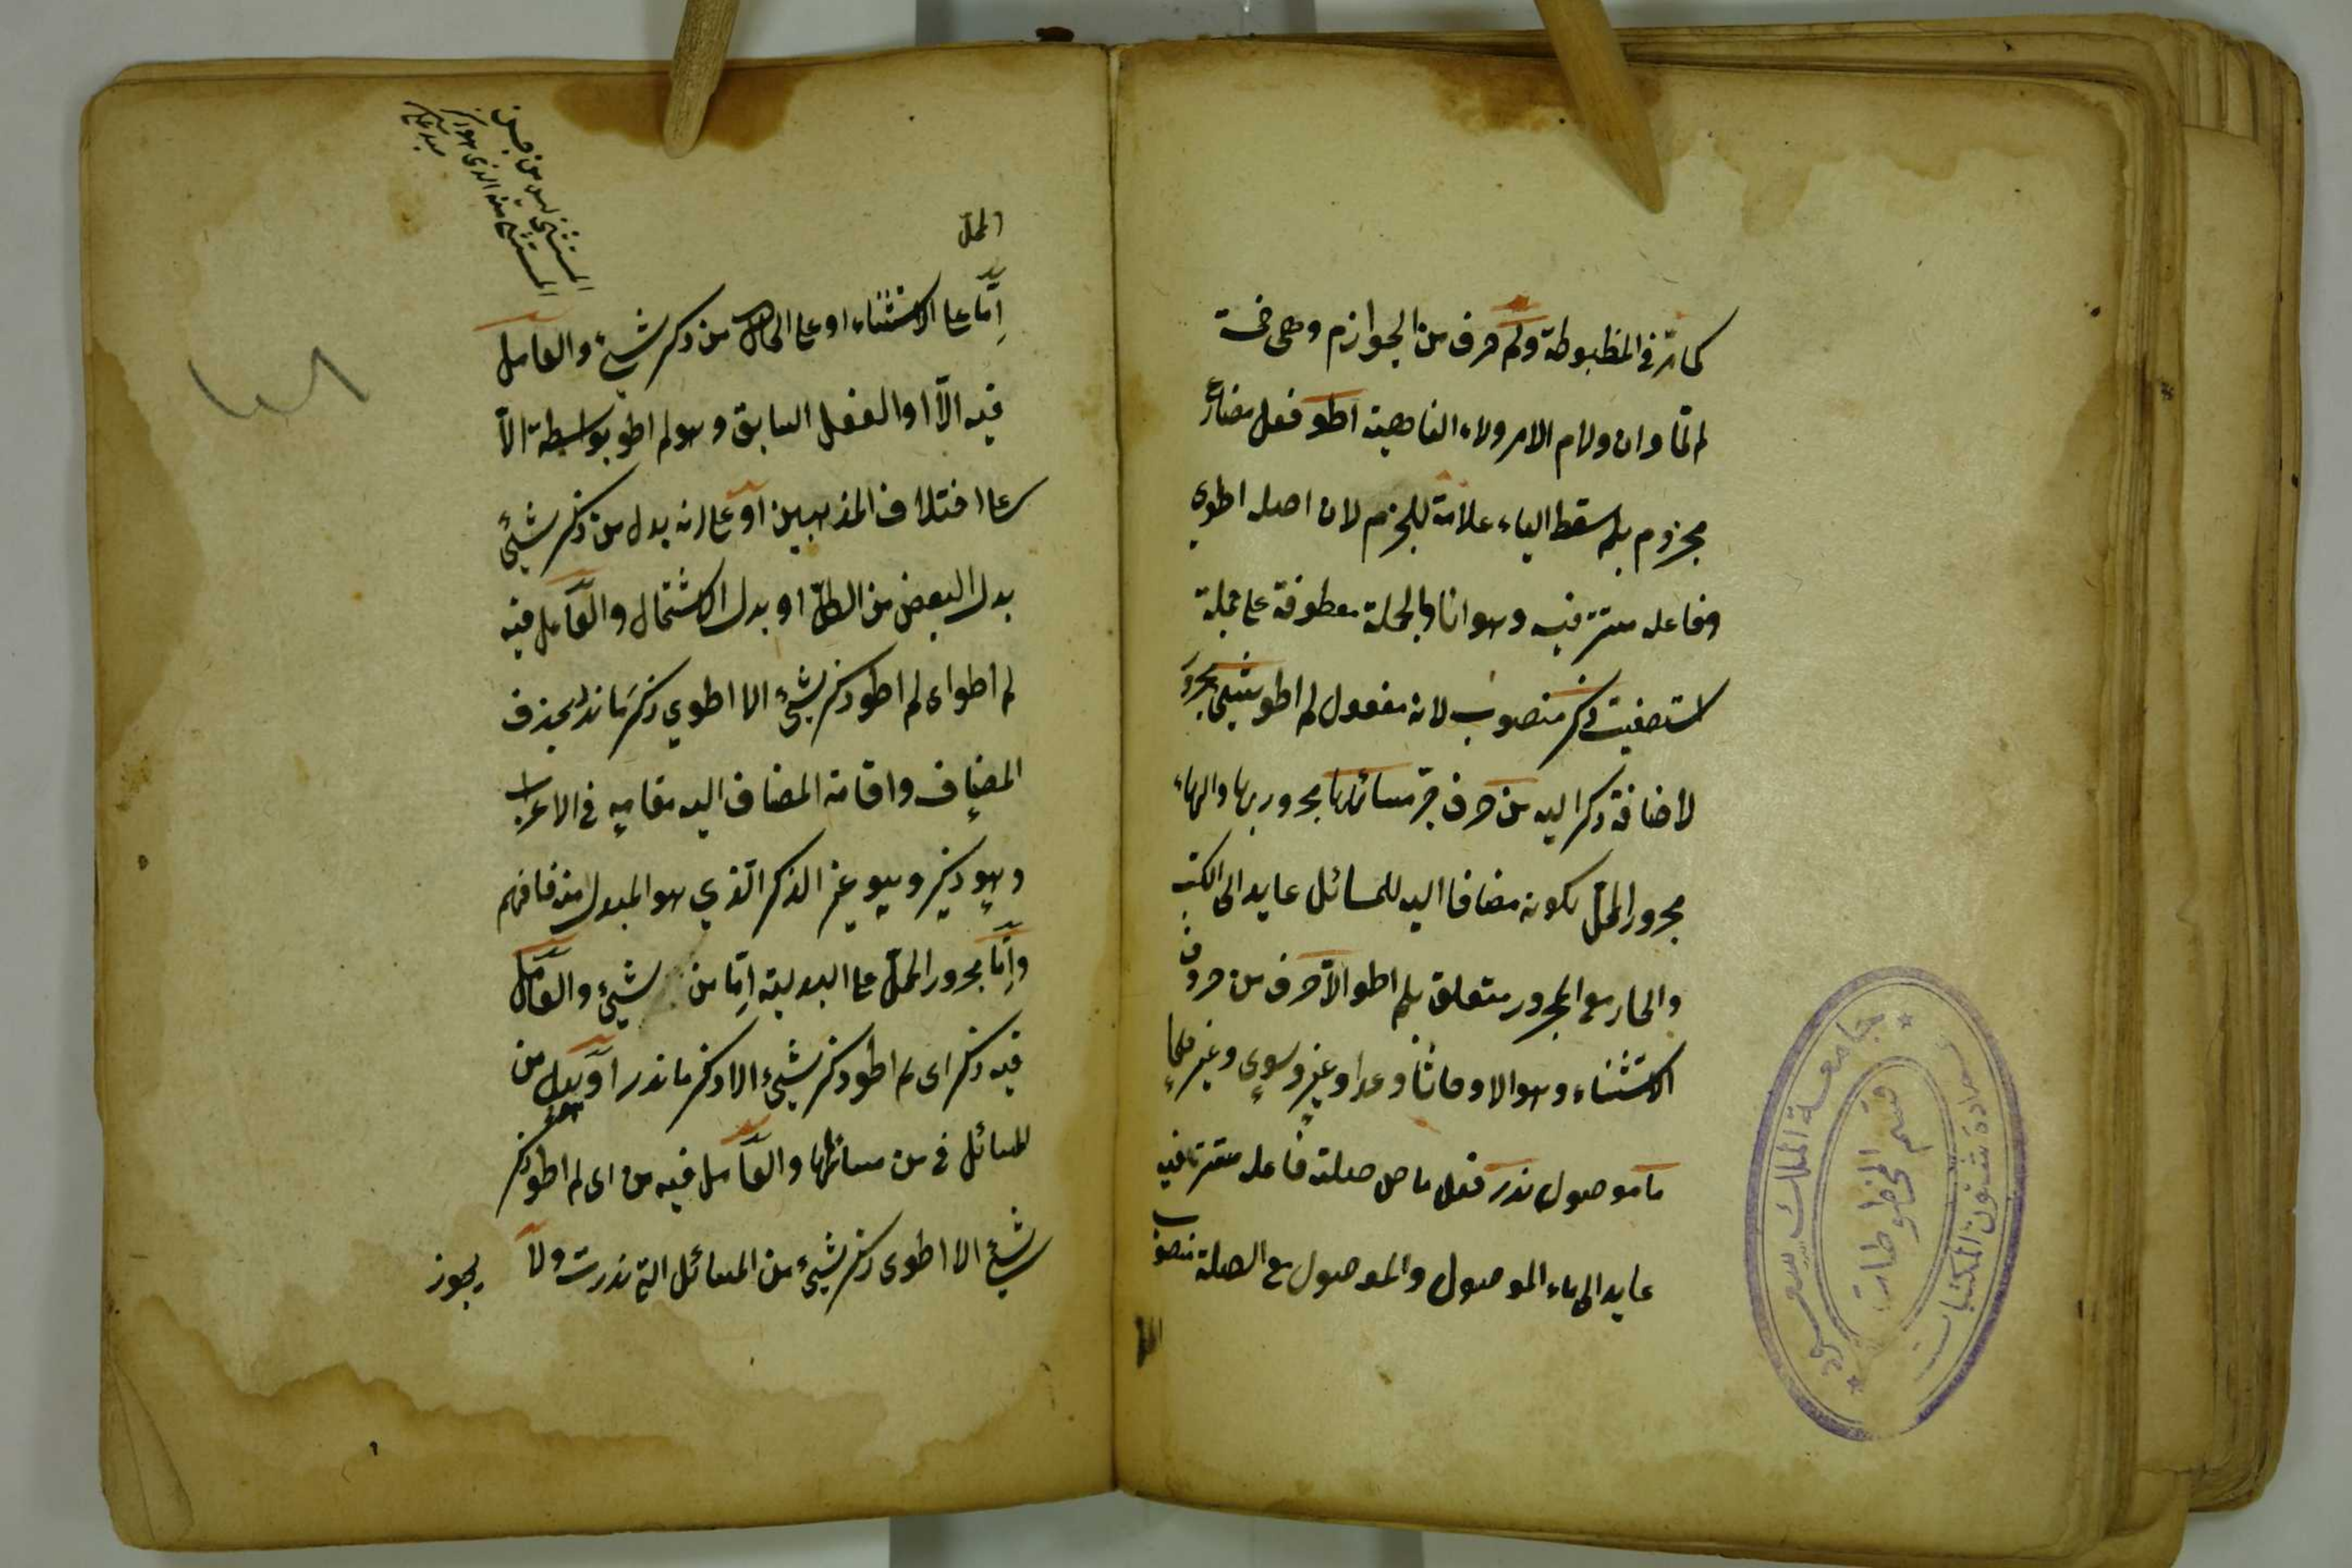 كما مر في المظبوطة ولم حرف من الجوازم وهي خمسة
لم لما وان ولام الامر ولاء الناهية اطو فعل مضارع
مجزوم بلم سقط الياء علامة للجزم لان اصله اطوي
وفاعله مستتر فيه وهو انا والجملة معطوفة على جملة
استصفيت ذكر منصوب لانه مفعول لم اطو شيئ مجرور
لاضافة ذكر اليه من حرف جر مسائلها مجرور بها والهاء
مجرور المحل لكونه مضافا اليه للمسائل عايد الى الكتب
والجار مع المجرور متعلق بلم اطو الا حرف من حروف
الاستثناء وهو الا وحاشا وعدا وغير وسوى وغير
ما موصول ندر فعل ماض صلته فاعله مستتر فيه
عايد الى ماء الموصول والموصول مع الصلة منصوب
المحل
إمّا على الاستثناء او على الحال من ذكر شيئ والعامل
فيه الّا او الفعل السابق وهو لم اطو بواسطة الّا
على اختلاف المذهبين او على انه بدل من ذكر شيئ
بدل البعض من الكلّ او بدل الاشتمال والعامل فيه
لم اطو اى لم اطو ذكر شيئ الا اطوي ذكر ما ندر بحذف
المضاف واقامة المضاف اليه مقامه في الاعراب
وهو ذكر وهو غير الذكر الّذي هو المبدل منه فافهم
وإمّا مجرور المحلّ على البدلية إمّا من شيئ والعامل
فيه ذكر اى لم اطو ذكر شيئ الا ذكر ما ندر او بدل من
المسائل في من مسائلها والعامل فيه من اى لم اطو ذكر
شيئ الا اطوى ذكر شيئ من المسائل التي ندرت ولا
يجوز
المستثنى ليس من جنس
المستثنى منه الذي هو ذكر
١٠٨
جامعة الملك سعود
قسم المخطوطات
عمادة شئون المكتبات